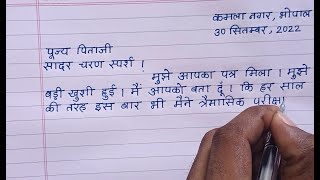 कमला नगर, भोपाल
30 सितम्बर, 2022
पूज्य पिताजी
सादर चरण स्पर्श ।
मुझे आपका पत्र मिला । मुझे
बड़ी खुशी हुई । मैं आपको बता दूँ । कि हर साल
की तरह इस बार भी मैने त्रैमासिक परीक्षा